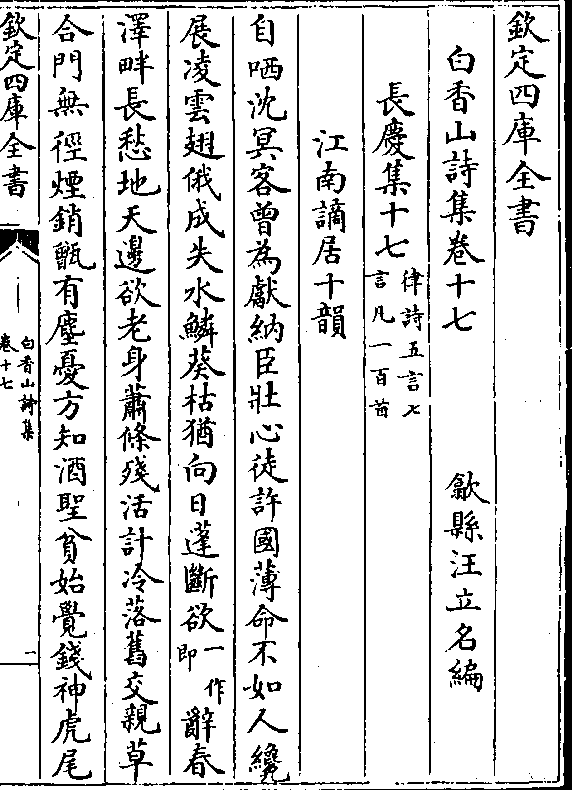 欽定四庫全書
白香山詩集卷十七　歙縣汪立名編
長慶集十七律詩五言七言凡一百首
江南謫居十韻
自哂沈冥客曾為獻納臣壯心徒許國薄命不如人纔
展凌雲翅俄成失水鱗葵枯猶向日蓬斷欲一作即辭春
澤畔長愁地天邊欲老身蕭條殘活計冷落舊交親草
合門無徑煙銷甑有塵憂方知酒聖貧始覺錢神虎尾
欽定四庫全書
白香山詩集
卷十七
一